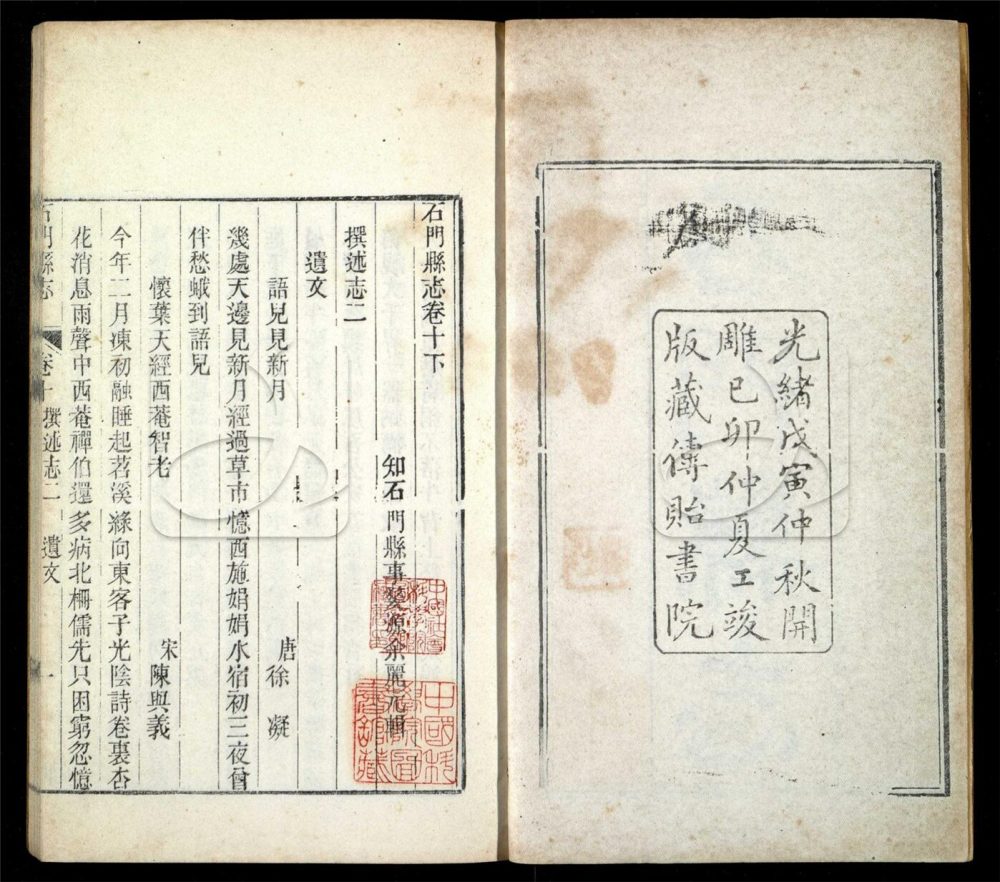 光緒戊寅仲秋開
雕己卯仲夏工竣
版藏傳貽書院
石門縣志卷十下
知石門縣事婺源余麗元輯
撰述志二
遺文
語兒見新月
唐徐凝
幾處天邊見新月經過草市憶西施娟娟水宿初三夜曾
伴愁蛾到語兒
懷葉天經西菴智老
宋陳與義
今年二月凍初融睡起苕溪綠向東客子光陰詩卷裏杏
花消息雨聲中西菴禪伯還多病北柵儒先只困窮忽憶
石門縣志
卷十
撰述志二
遺文
一